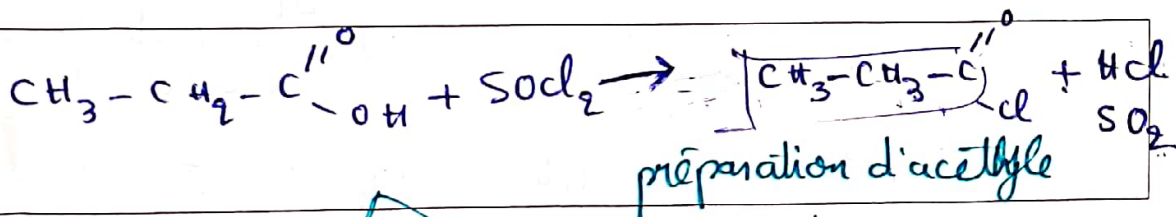 CH₃-CH₂-C(=O)-OH + SOCl₂ → CH₃-CH₃-C(=O)-Cl + HCl
SO₂
préparation d'acéthyle